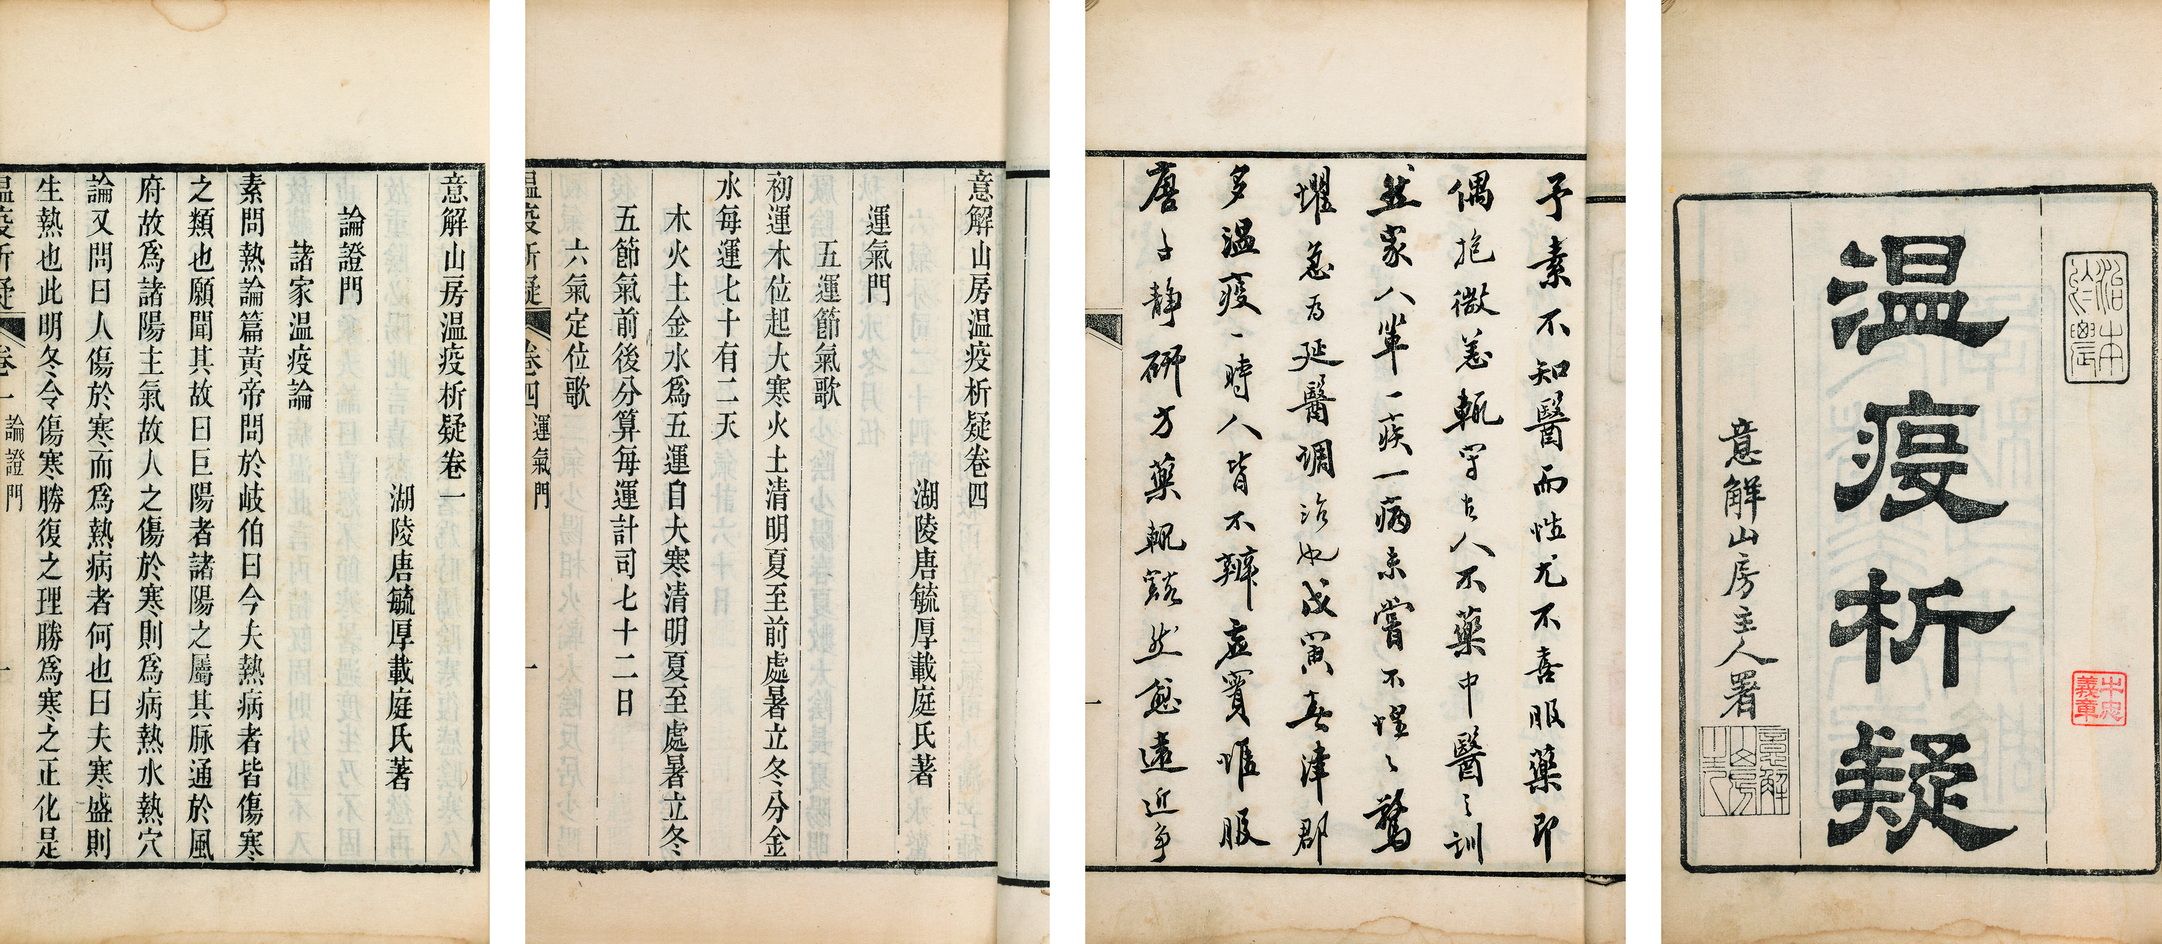 治本於農
中忠義章
温疫析疑
意解山房主人署
意解山房主人
予素不知醫而性尤不喜服藥即
偶抱微恙輒守古人不藥中醫之訓
然家人輩一疾一病未嘗不惶々驚
懼急為延醫調治也戊寅春津郡
多温疫一時人皆不辨虛實惟服
唐子静研方藥輒豁然愈遠近爭
意解山房温疫析疑卷四
湖陵唐毓厚載庭氏著
運氣門
五運節氣歌
初運木位起大寒火土清明夏至前處暑立冬分金
水每運七十有二天
木火土金水爲五運自大寒清明夏至處暑立冬
五節氣前後分算每運計司七十二日
六氣定位歌
温疫析疑
卷四
運氣門
一
意解山房温疫析疑卷一
湖陵唐毓厚載庭氏著
論證門
諸家温疫論
素問熱論篇黃帝問於岐伯曰今夫熱病者皆傷寒
之類也願聞其故曰巨陽者諸陽之屬其脉通於風
府故爲諸陽主氣故人之傷於寒則爲病熱水熱穴
論又問曰人傷於寒而爲熱病者何也曰夫寒盛則
生熱也此明冬令傷寒勝復之理勝爲寒之正化是
温疫析疑
卷一
論證門
一